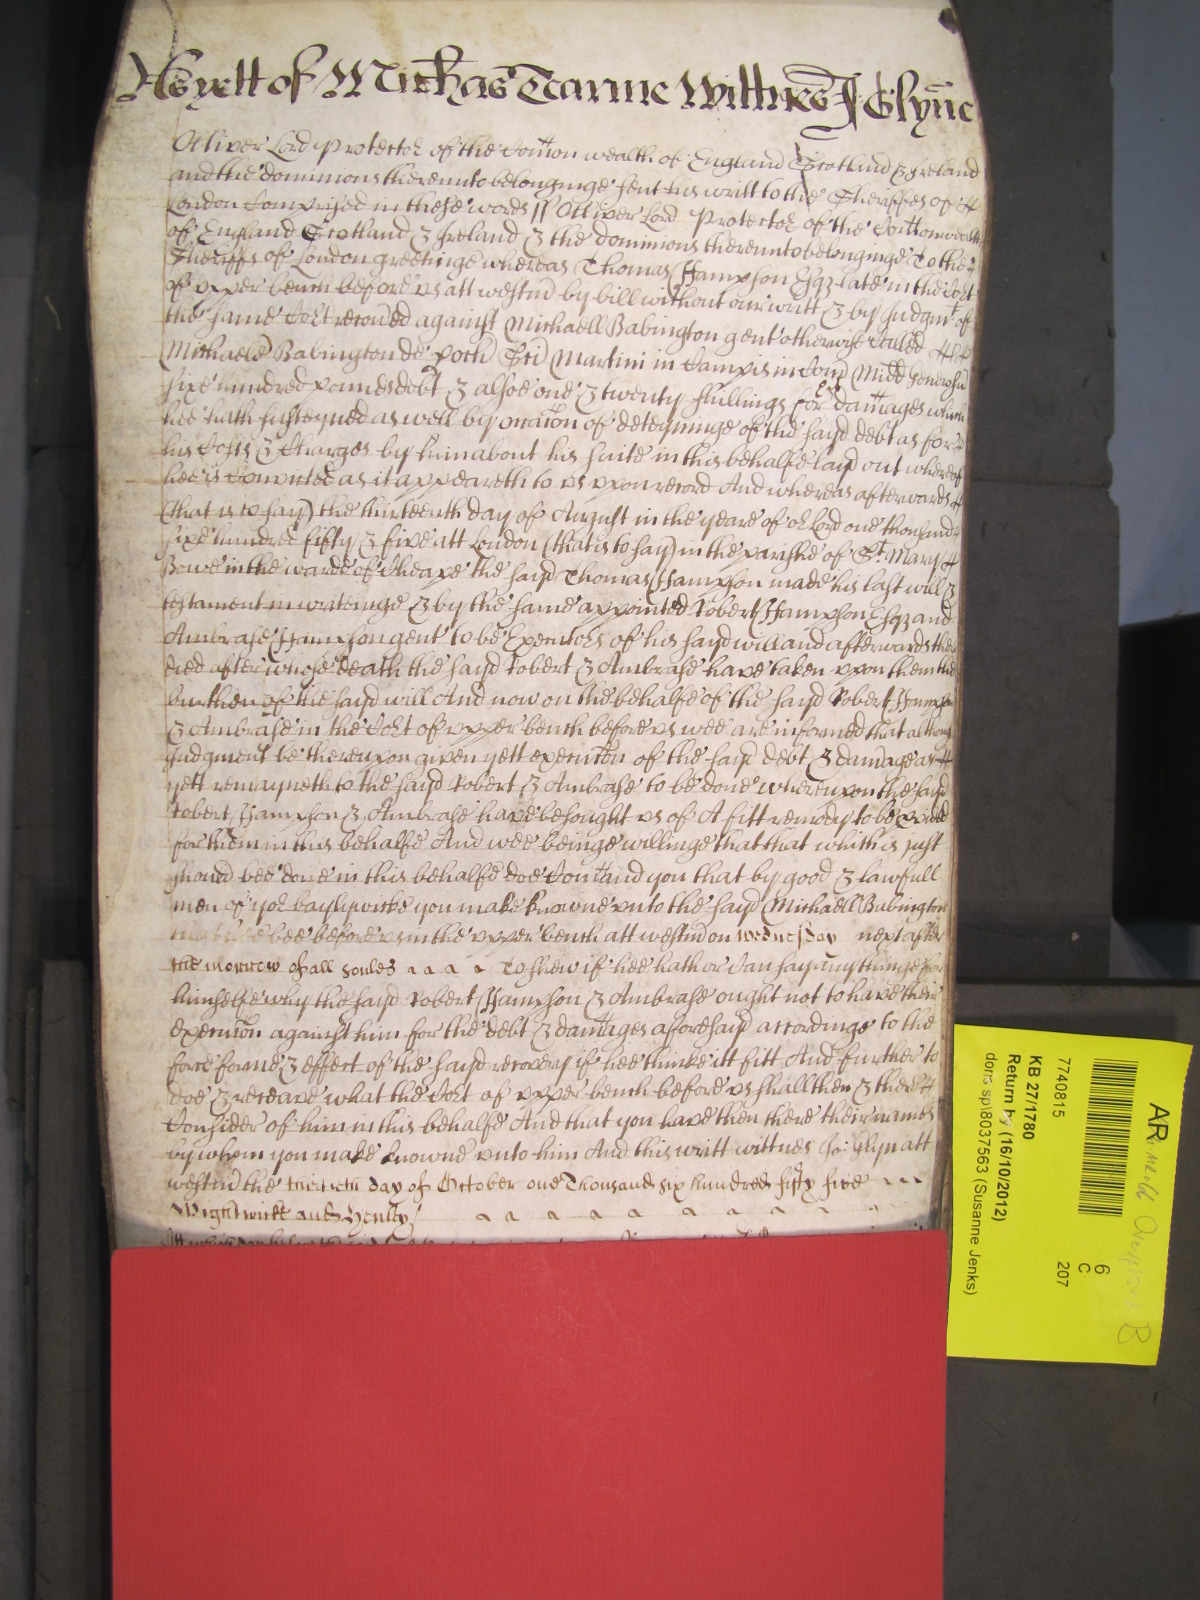 As yett of Mich̄as Tearme Wittnes J Glynne
Olliver Lord Protector of the Comon wealth of England Scotland & Ireland
and the dominions thereunto belonginge sent his writt to the Sheriffes of
London Comprised in these words // Olliver Lord Protector of the Comonwealth
of England Scotland & Ireland & the dominions thereunto belonginge To the
Sheriffs of London greetinge whereas Thomas Hampson Esqr late in the Cort
of upper bench before us att westmr by bill without our writt & by Judgmt of
the same Cort recovred against Michaell Babington gent otherwise Called
Michaele Babington de poch Sci Martini in Campis in Com Midd Generosu
sixe hundred pounds debt & alsoe one & twenty shillings for damages which
hee hath susteyned as well by occacon of deteyninge of the sayd debt as for
his Costs & Charges by him about his suite in this behalfe layd out whereof
hee is Convicted as it appeareth to us upon record And whereas afterwards
(that is to say) the thirteenth day of August in the yeare of or Lord one thousand
sixe hundred fifty & five att London (that is to say) in the parishe of St Mary
Bowe in the warde of Cheape the sayd Thomas Hampson made his last will &
testament in writeinge & by the same appointed Robert Hampson Esqr and
Ambrase Hampson gent to be Executors of his sayd will and afterwards there
died after whose death the sayd Robert & Ambrase have taken upon them the
burthen of the sayd will And now on the behalfe of the sayd Robert Hampson
& Ambrase in the Cort of upper bench before us wee are informed that although
Judgment be thereupon given yett execucon of the sayd debt & damages
yett remayneth to the sayd Robert & Ambrase to be done whereupon the sayd
Robert Hampson & Ambrase have besought us of A fitt remedy to be
for them in this behalfe And wee beinge willinge that that which is just
should bee done in this behalfe doe Comand you that by good & lawfull
men of yor baylywicke you make knowne unto the sayd Michaell Babington
that hee bee before us in the upper bench att westmr on wednesday next after
the morrow of all soules To shew if hee hath or Can say any thinge for
himselfe why the sayd Robert Hampson & Ambrase ought not to have their
execucon against him for the debt & damages aforesayd accordinge to the
force forme & effect of the sayd recovery if hee thinke itt fitt And further to
doe & receave what the Cort of upper bench before us shall then & there
Consider of him in this behalfe And that you have then there their names
by whom you make knowne unto him And this writt wittnes Jo: Glyn att
westmr the day of October one Thousand six hundred fifty five
Wightwicke and Henley
AR
7740815
KB 27/1780
Return by (16/10/2012)
doris sp\8037563 (Susanne Jenks)
6
C
207
B